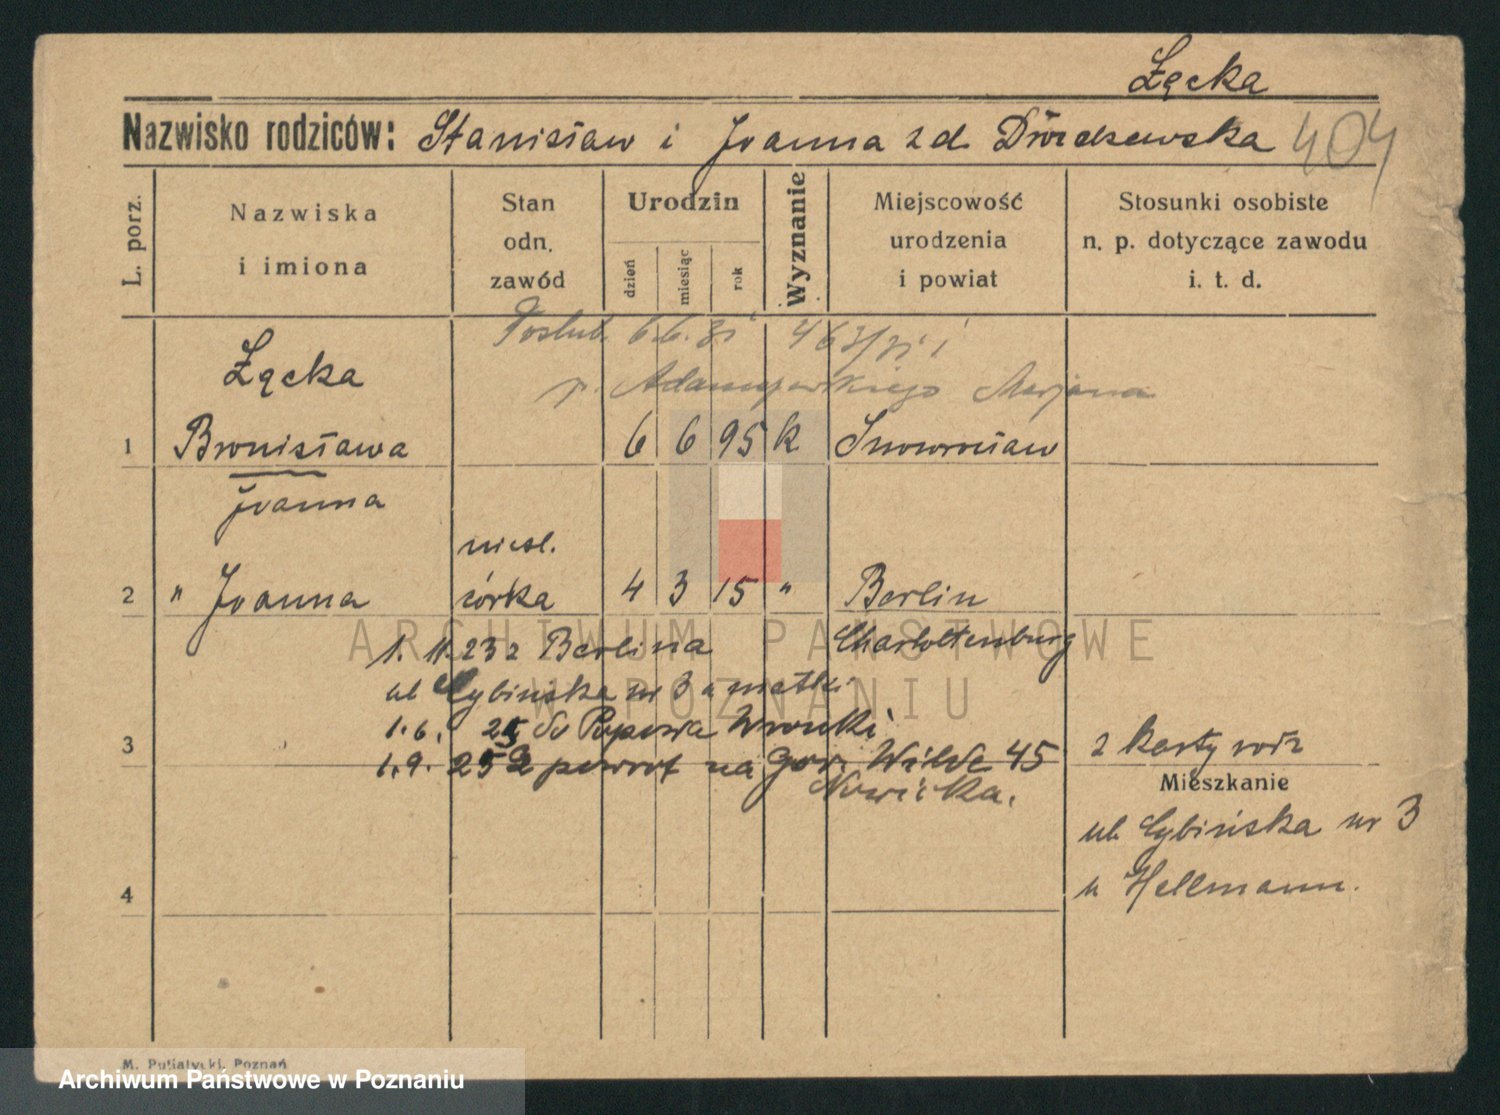 Łącka
Nazwisko rodziców: Stanisław i Joanna z d. Drozdzewska 404
L. porz.
Nazwiska
i imiona
Stan
odn.
zawód
Urodzin
dzień
miesiąc
rok
Wyznanie
Miejscowość
urodzenia
i powiat
Stosunki osobiste
n. p. dotyczące zawodu
i. t. d.
Poślub. 6.6.31 463/31
p. Adamczewskiego Marjana
Łącka
1 Bronisława 6 6 95 k Inowrocław
Joanna
niesl.
2 " Joanna córka 4 3 15 " Berlin
Charlottenburg
1. 11. 23 z Berlina
ul Cybińska nr 3 u matki
1. 6. 25 do Popowa Wronki
3
1. 9. 25 powrot na Gor. Wilde 45
Nowicka.
z karty rodz
Mieszkanie
ul. Cybińska nr 3
u Hellmann.
4
M. Putiatycki, Poznań
ARCHIWUM PAŃSTWOWE
W POZNANIU
Archiwum Państwowe w Poznaniu